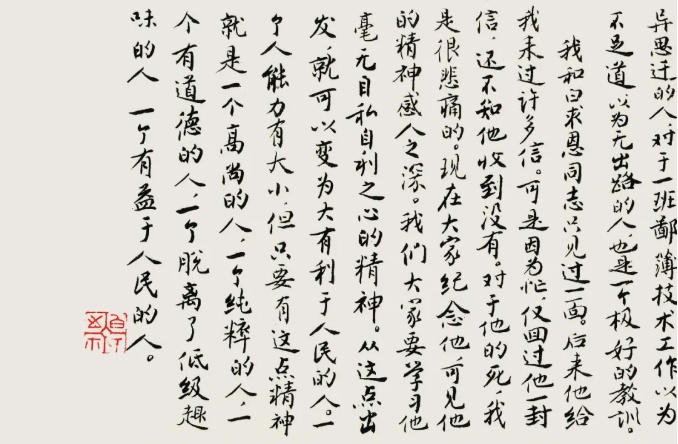 异思迁的人对于一班鄙薄技术工作以为
不足道以为无出路的人,也是一个极好的教训。
我和白求恩同志只见过一面。后来他给
我来过许多信。可是因为忙,仅回过他一封
信,还不知他收到没有。对于他的死,我
是很悲痛的。现在大家纪念他,可见他
的精神感人之深。我们大家要学习他
毫无自私自利之心的精神。从这点出
发,就可以变为大有利于人民的人。一
个人能力有大小,但只要有这点精神
就是一个高尚的人,一个纯粹的人,一
个有道德的人,一个脱离了低级趣
味的人 一个有益于人民的人。